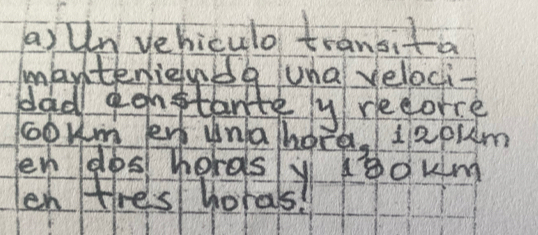 a) Un vehiculo transita
manteniendo una veloci-
dad constante y recorre
60Km en una hora, 120Km
en dos horas y 180Km
en tres horas.